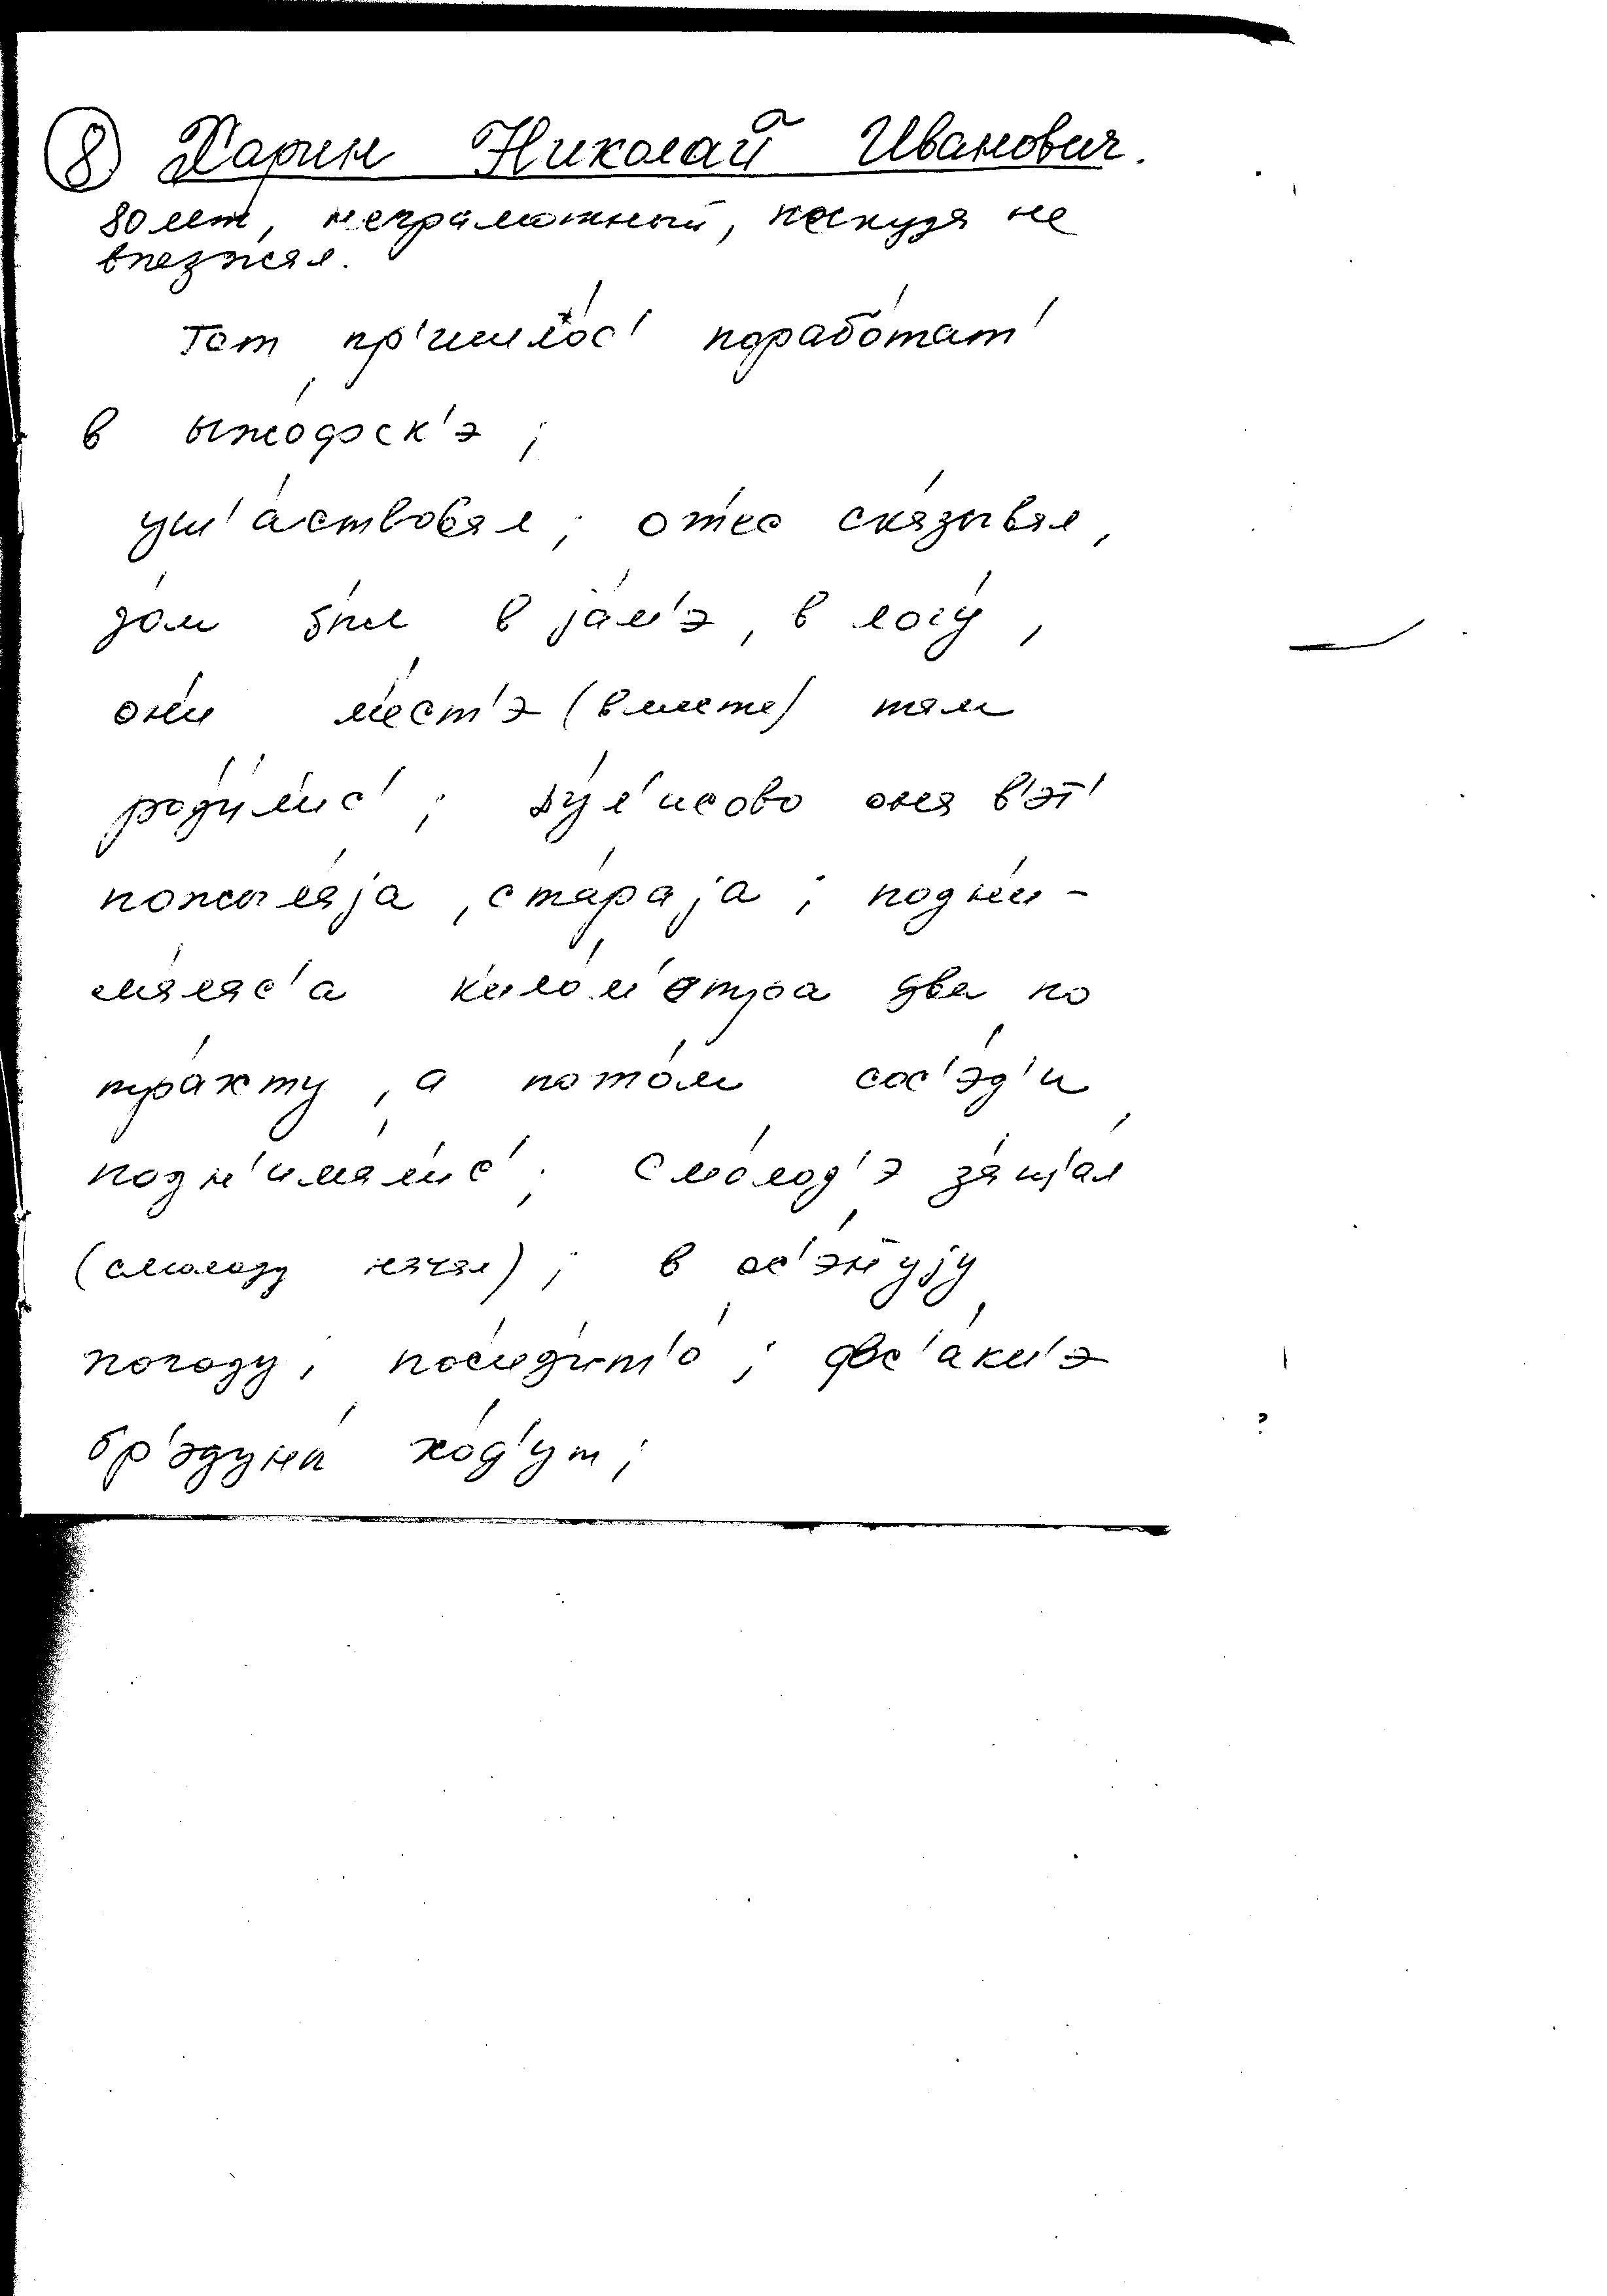 ⑧ Харин Николай Иванович.
80 лет, неграмотный, никуда не
выезжал.
Тот пр'ишло́с' порабо́тат'
в ыжо́фск'э ;
уш'а́ствовал ; оте́с ска́зывал,
до́м бы́л в jа́м'э, в логу́ ,
они́ м'е́ст'э (вместе) там
род'и́л'ис' ; ду́л'исово она в'эт'
пожыла́jа , ста́раjа ; подн'и-
ма́лас'а к'ило́м'этра два по
тра́кту , а пото́м сос'э́д'и
подн'има́л'ис' ; смо́лод'э за́ш'ал
(смолоду начал) ; в ос'э́н'уjу
погоду ; пос'ид'и́т'о ; фс'а́к'иэ
бр'эдуны́ хо́д'ут ;